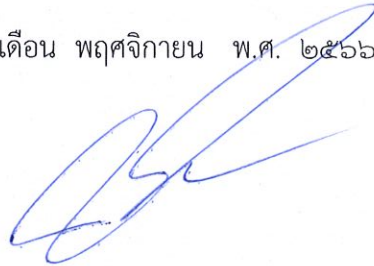 เดือน พฤศจิกายน พ.ศ. ๒๕๖๖